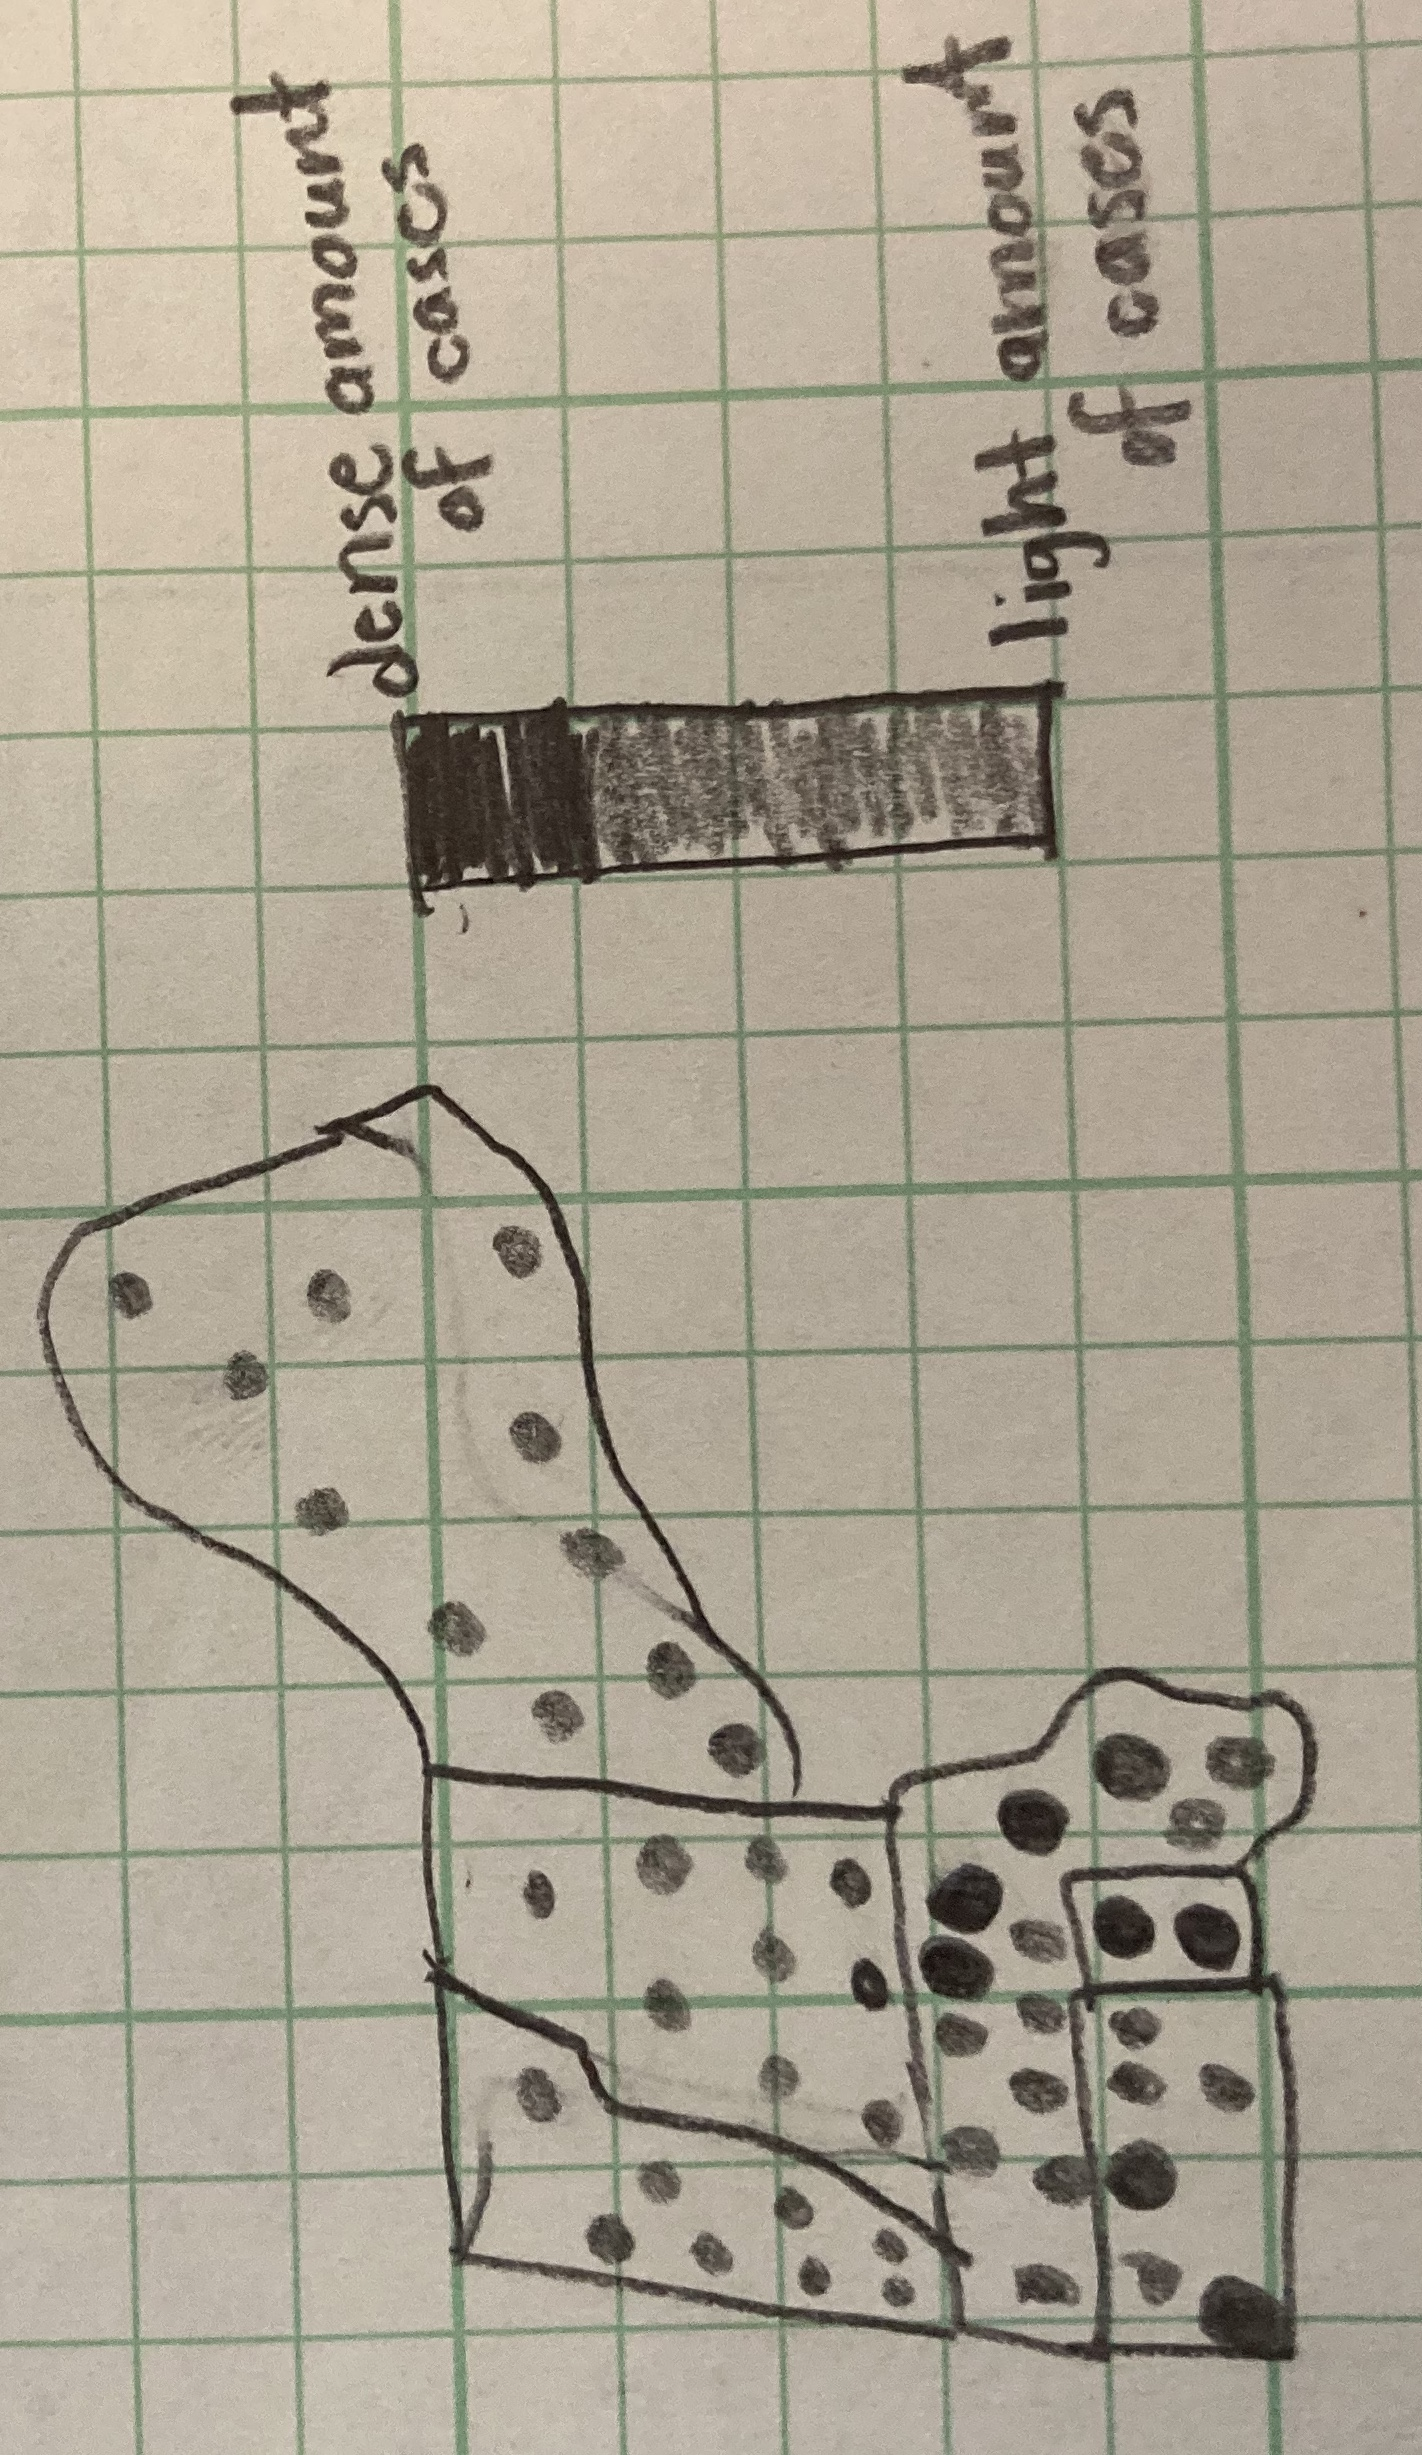 dense amount
of cases
light amount
of cases